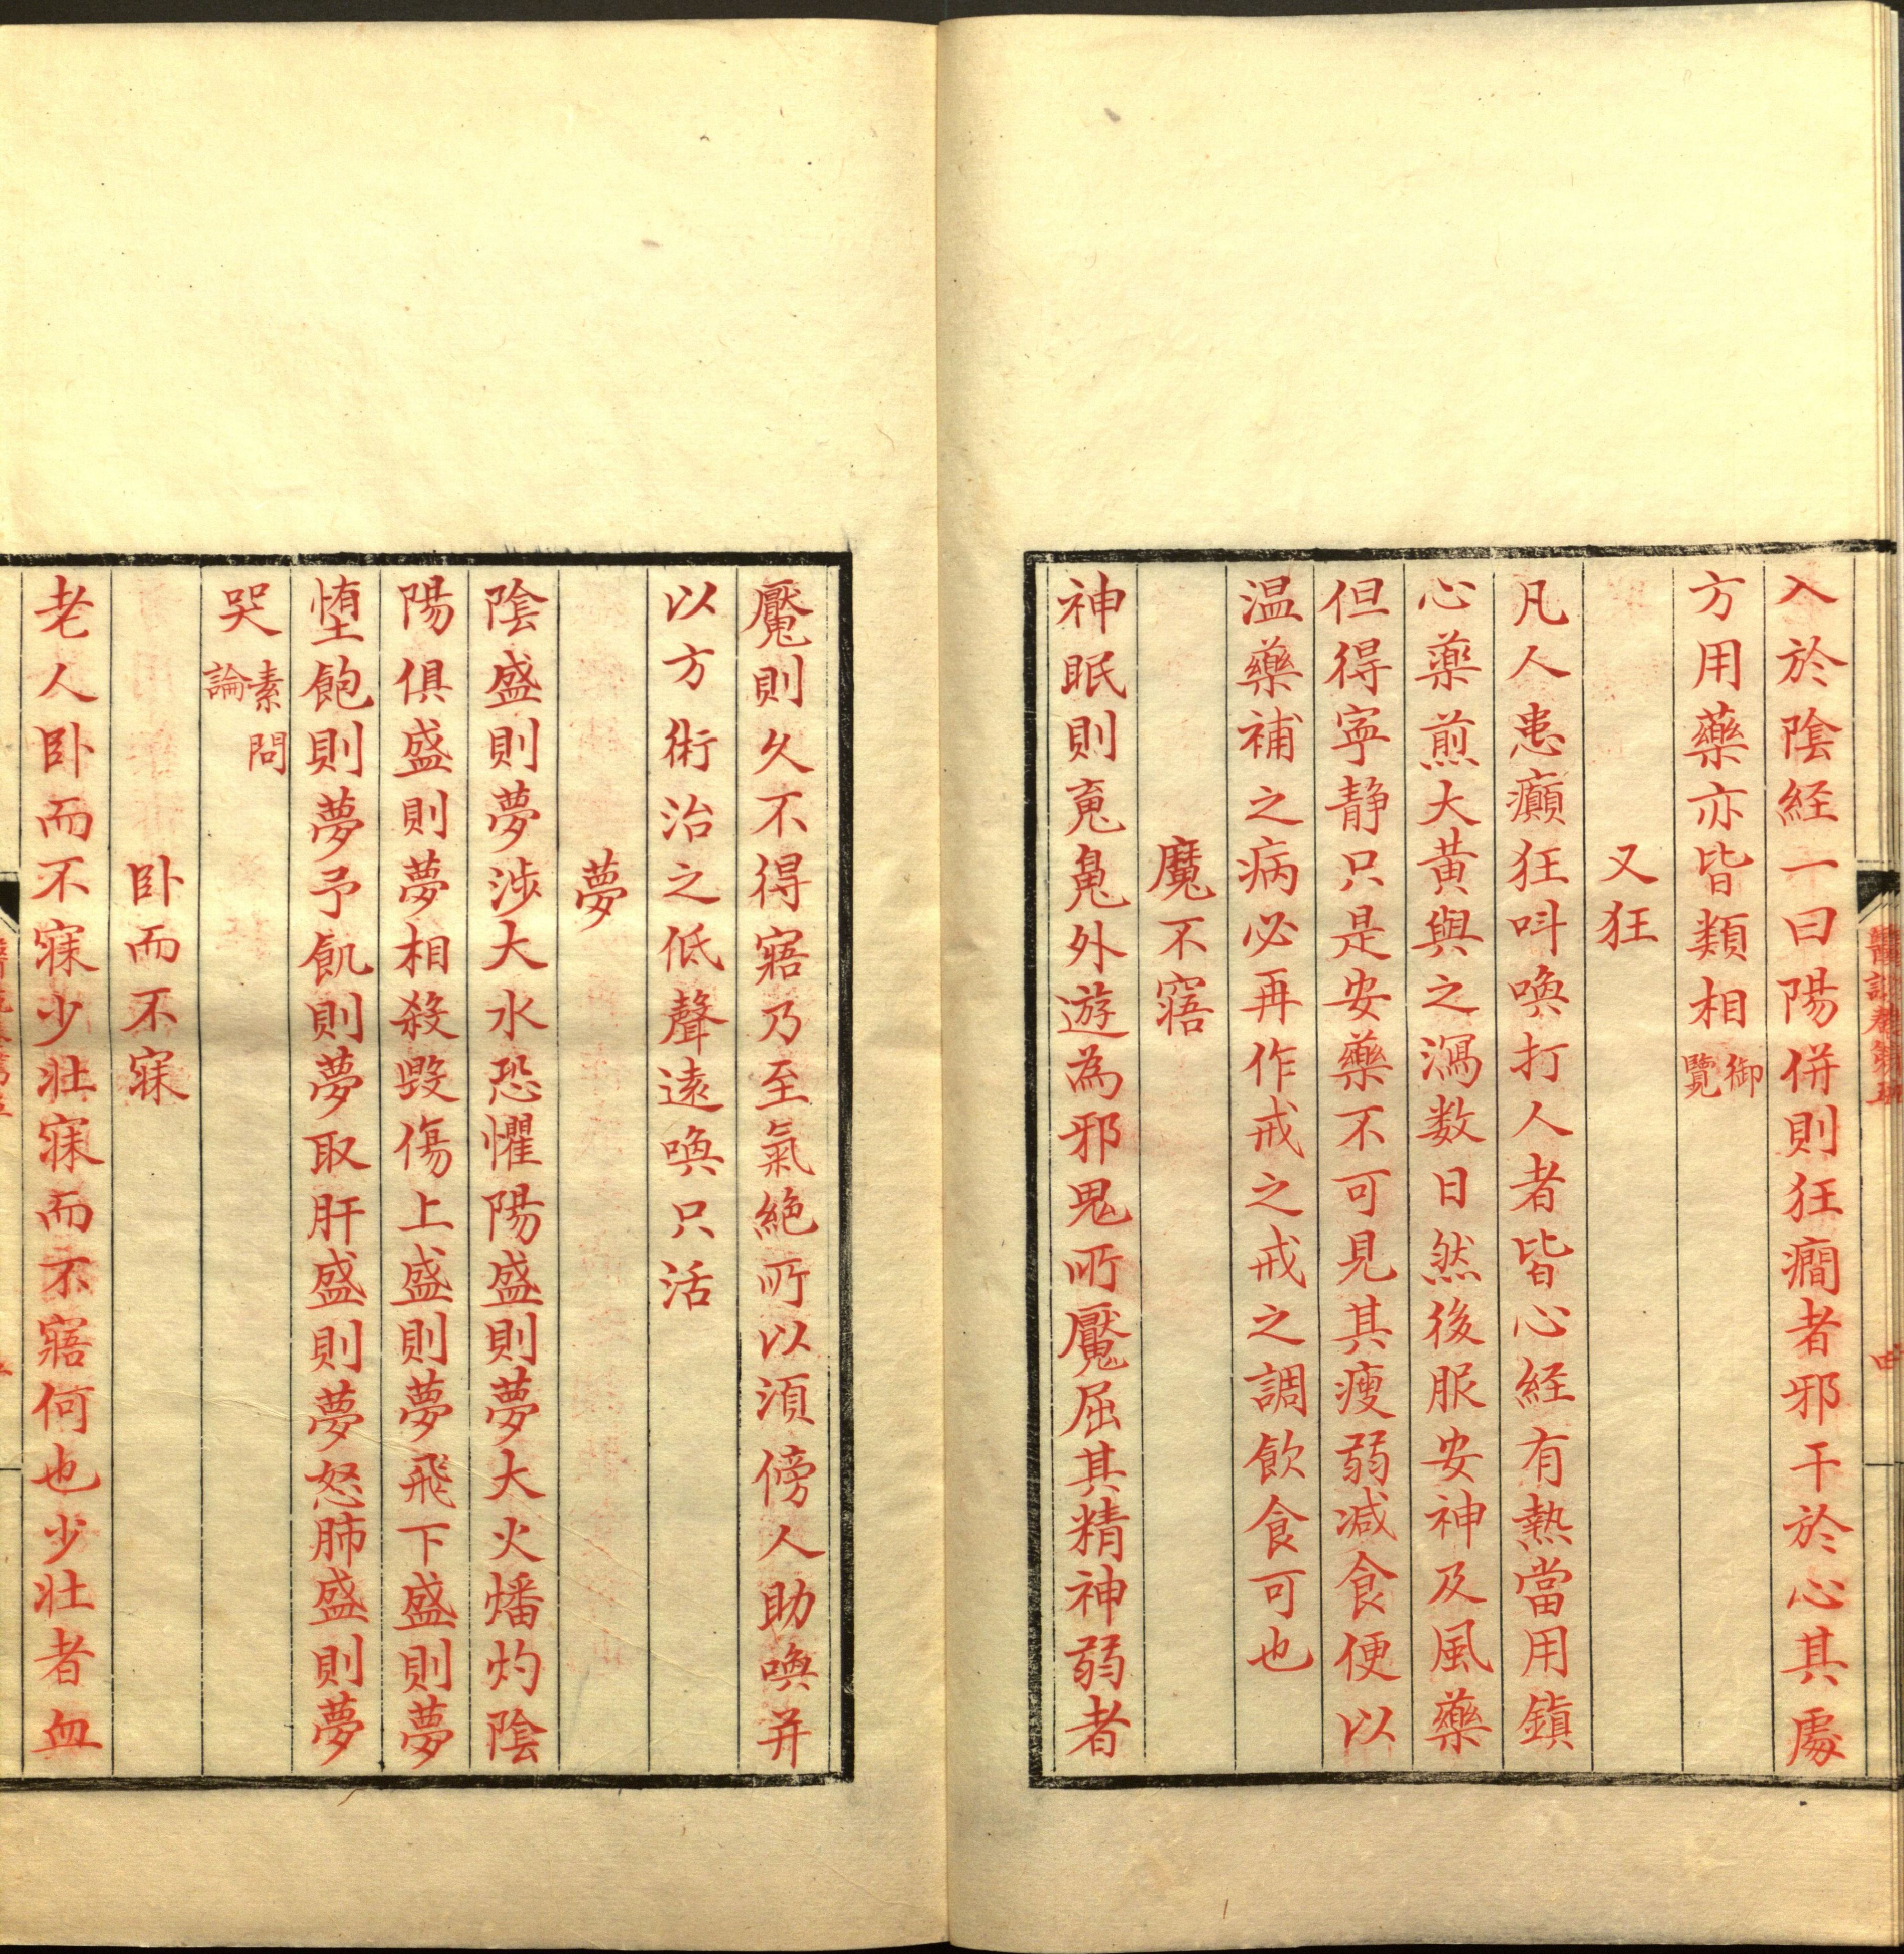 入於陰経一曰陽併則狂癎者邪干於心其處
方用藥亦皆類相御覽
又狂
凡人患癲狂呌喚打人者皆心経有熱當用鎮
心藥煎大黃與之瀉数日然後服安神及風藥
但得寜静只是安藥不可見其瘦弱減食便以
温藥補之病必再作戒之戒之調飲食可也
魔不寤
神眠則䰟鬽外遊為邪鬼所魘屈其精神弱者
魘則久不得寤乃至氣絶所以湏傍人助喚并
以方術治之低聲逺喚只活
夢
陰盛則夢涉大水恐懼陽盛則夢大火燔灼陰
陽俱盛則夢相殺毀傷上盛則夢飛下盛則夢
堕飽則夢予飢則夢取肝盛則夢怒肺盛則夢
哭素問論
卧而不寐
老人卧而不寐少壮寐而不寤何也少壮者血